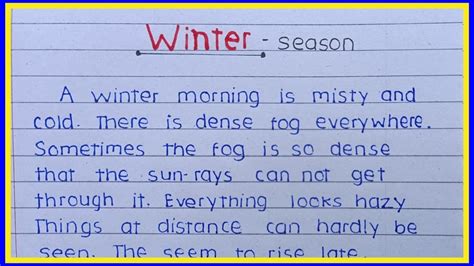 Winter - season
A winter morning is misty and
cold. There is dense fog everywhere.
Sometimes the fog is so dense
that the sun-rays can not get
through it. Everything looks hazy
Things at distance can hardly be
seen. The seem to rise late.